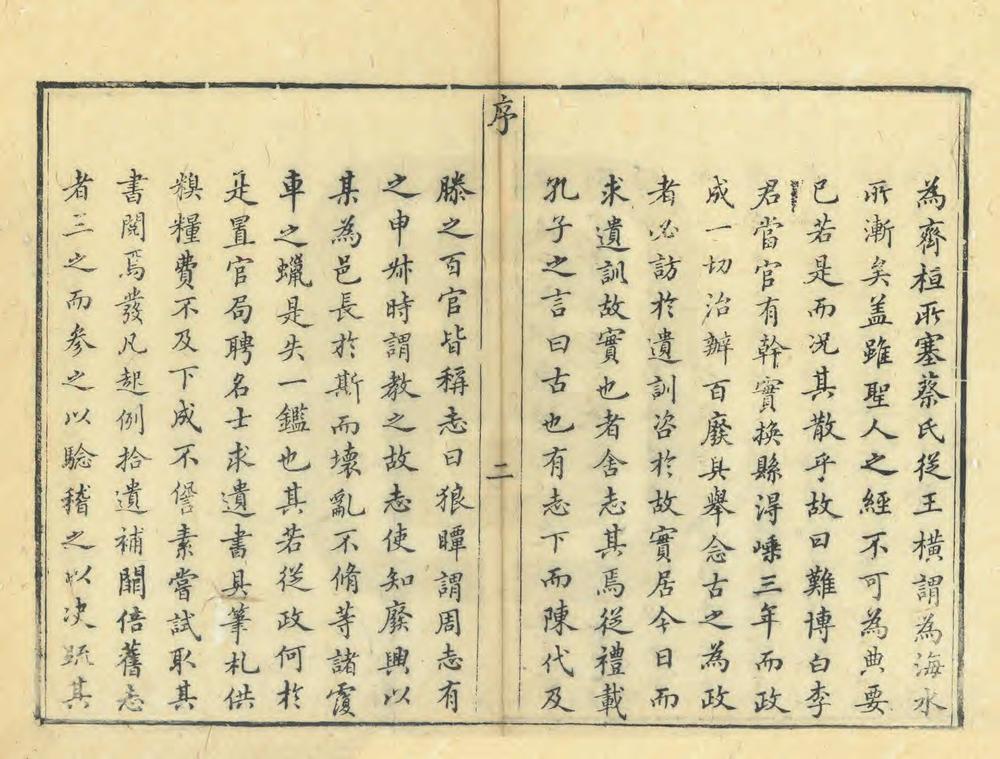 為齊桓所塞蔡氏從王橫謂為海水
所漸矣盖雖聖人之經不可為典要
已若是而況其散乎故曰難博白李
君當官有幹實換縣淂嵊三年而政
成一切治辦百廢具舉念古之為政
者必訪於遺訓咨於故實居今日而
求遺訓故實也者舍志其焉從禮載
孔子之言曰古也有志下而陳代及
序
二
滕之百官皆稱志曰狼瞫謂周志有
之申叔時謂教之故志使知廢興以
某為邑長於斯而壞亂不脩等諸覆
車之蠟是失一鑑也其若從政何於
是置官局聘名士求遺書具筆札供
糗糧費不及下成不愆素嘗試取其
書閱焉發凡起例拾遺補闕倍舊志
者三之而參之以騐稽之以決疏其